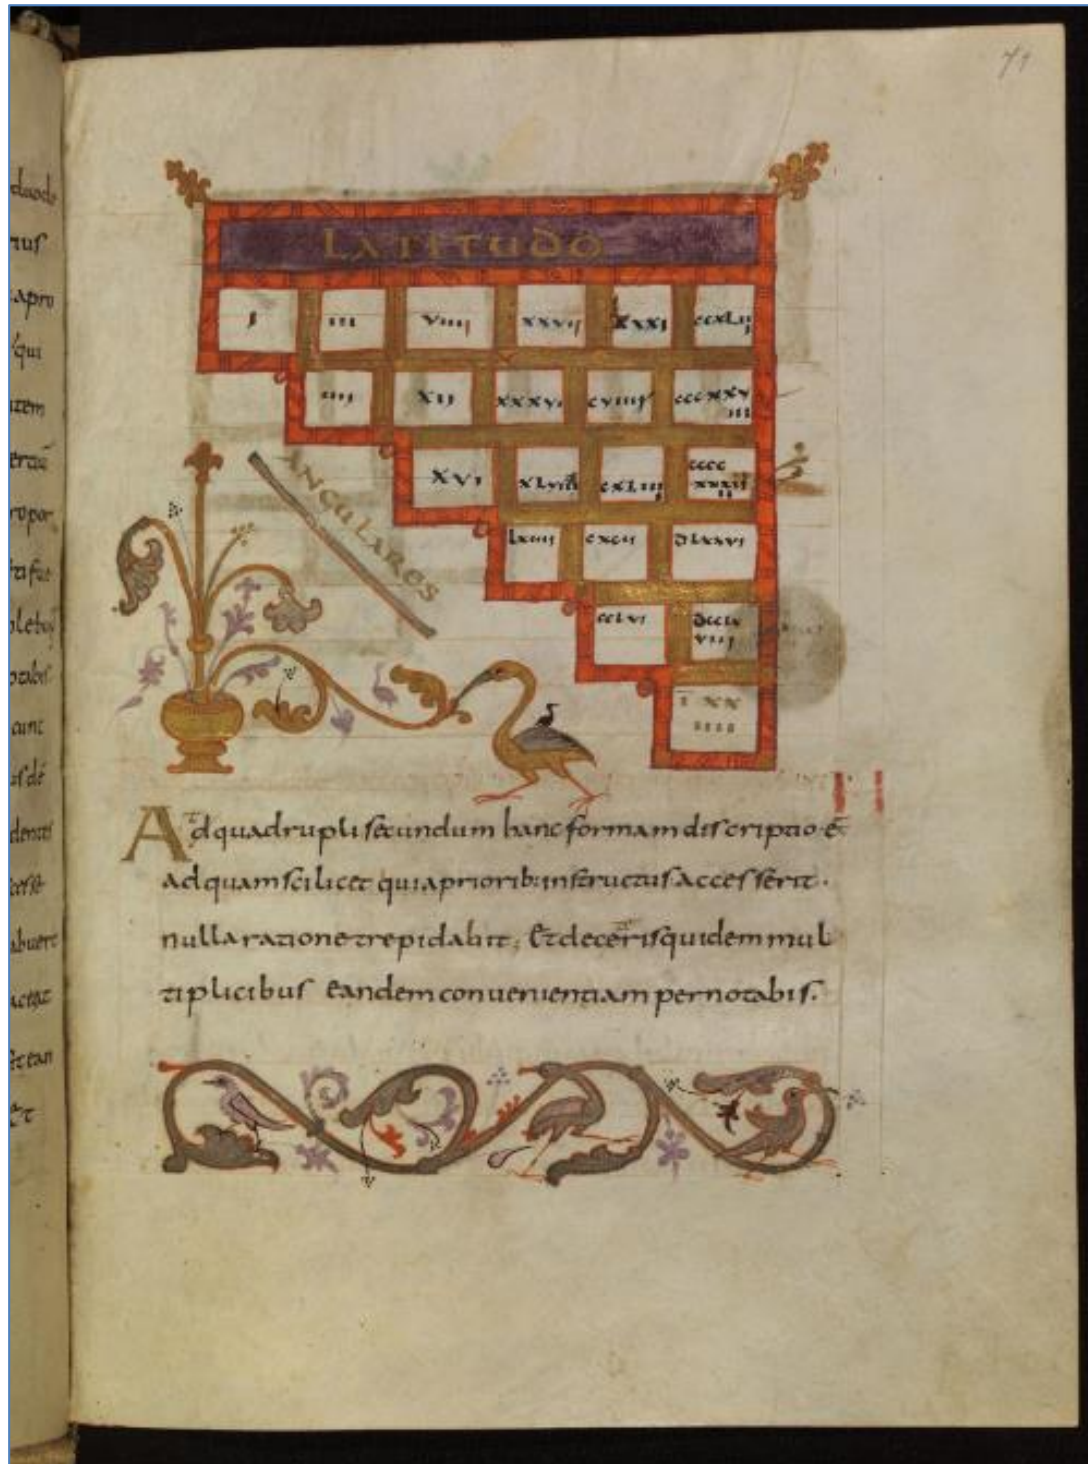 71
LATITUDO
I III VIIII XXVII lXXXI ccXLij
IIII XII XXXVI cVIIII cccXXV
III
XVI XLVIII cXLIIIj cccc
XXXII
lXIIII cXcII dLXXVI
ccLVI dccLX
VIII
I XX
IIII
ANGULARES
Ad quadrupli secundum hanc formam discriptio ē
ad quam scilicet qui apriorib: instructus accesserit.
nulla ratione trepidabit; Et deceris quidem mul
tiplicibus eandem conuenientiam pernotabis.